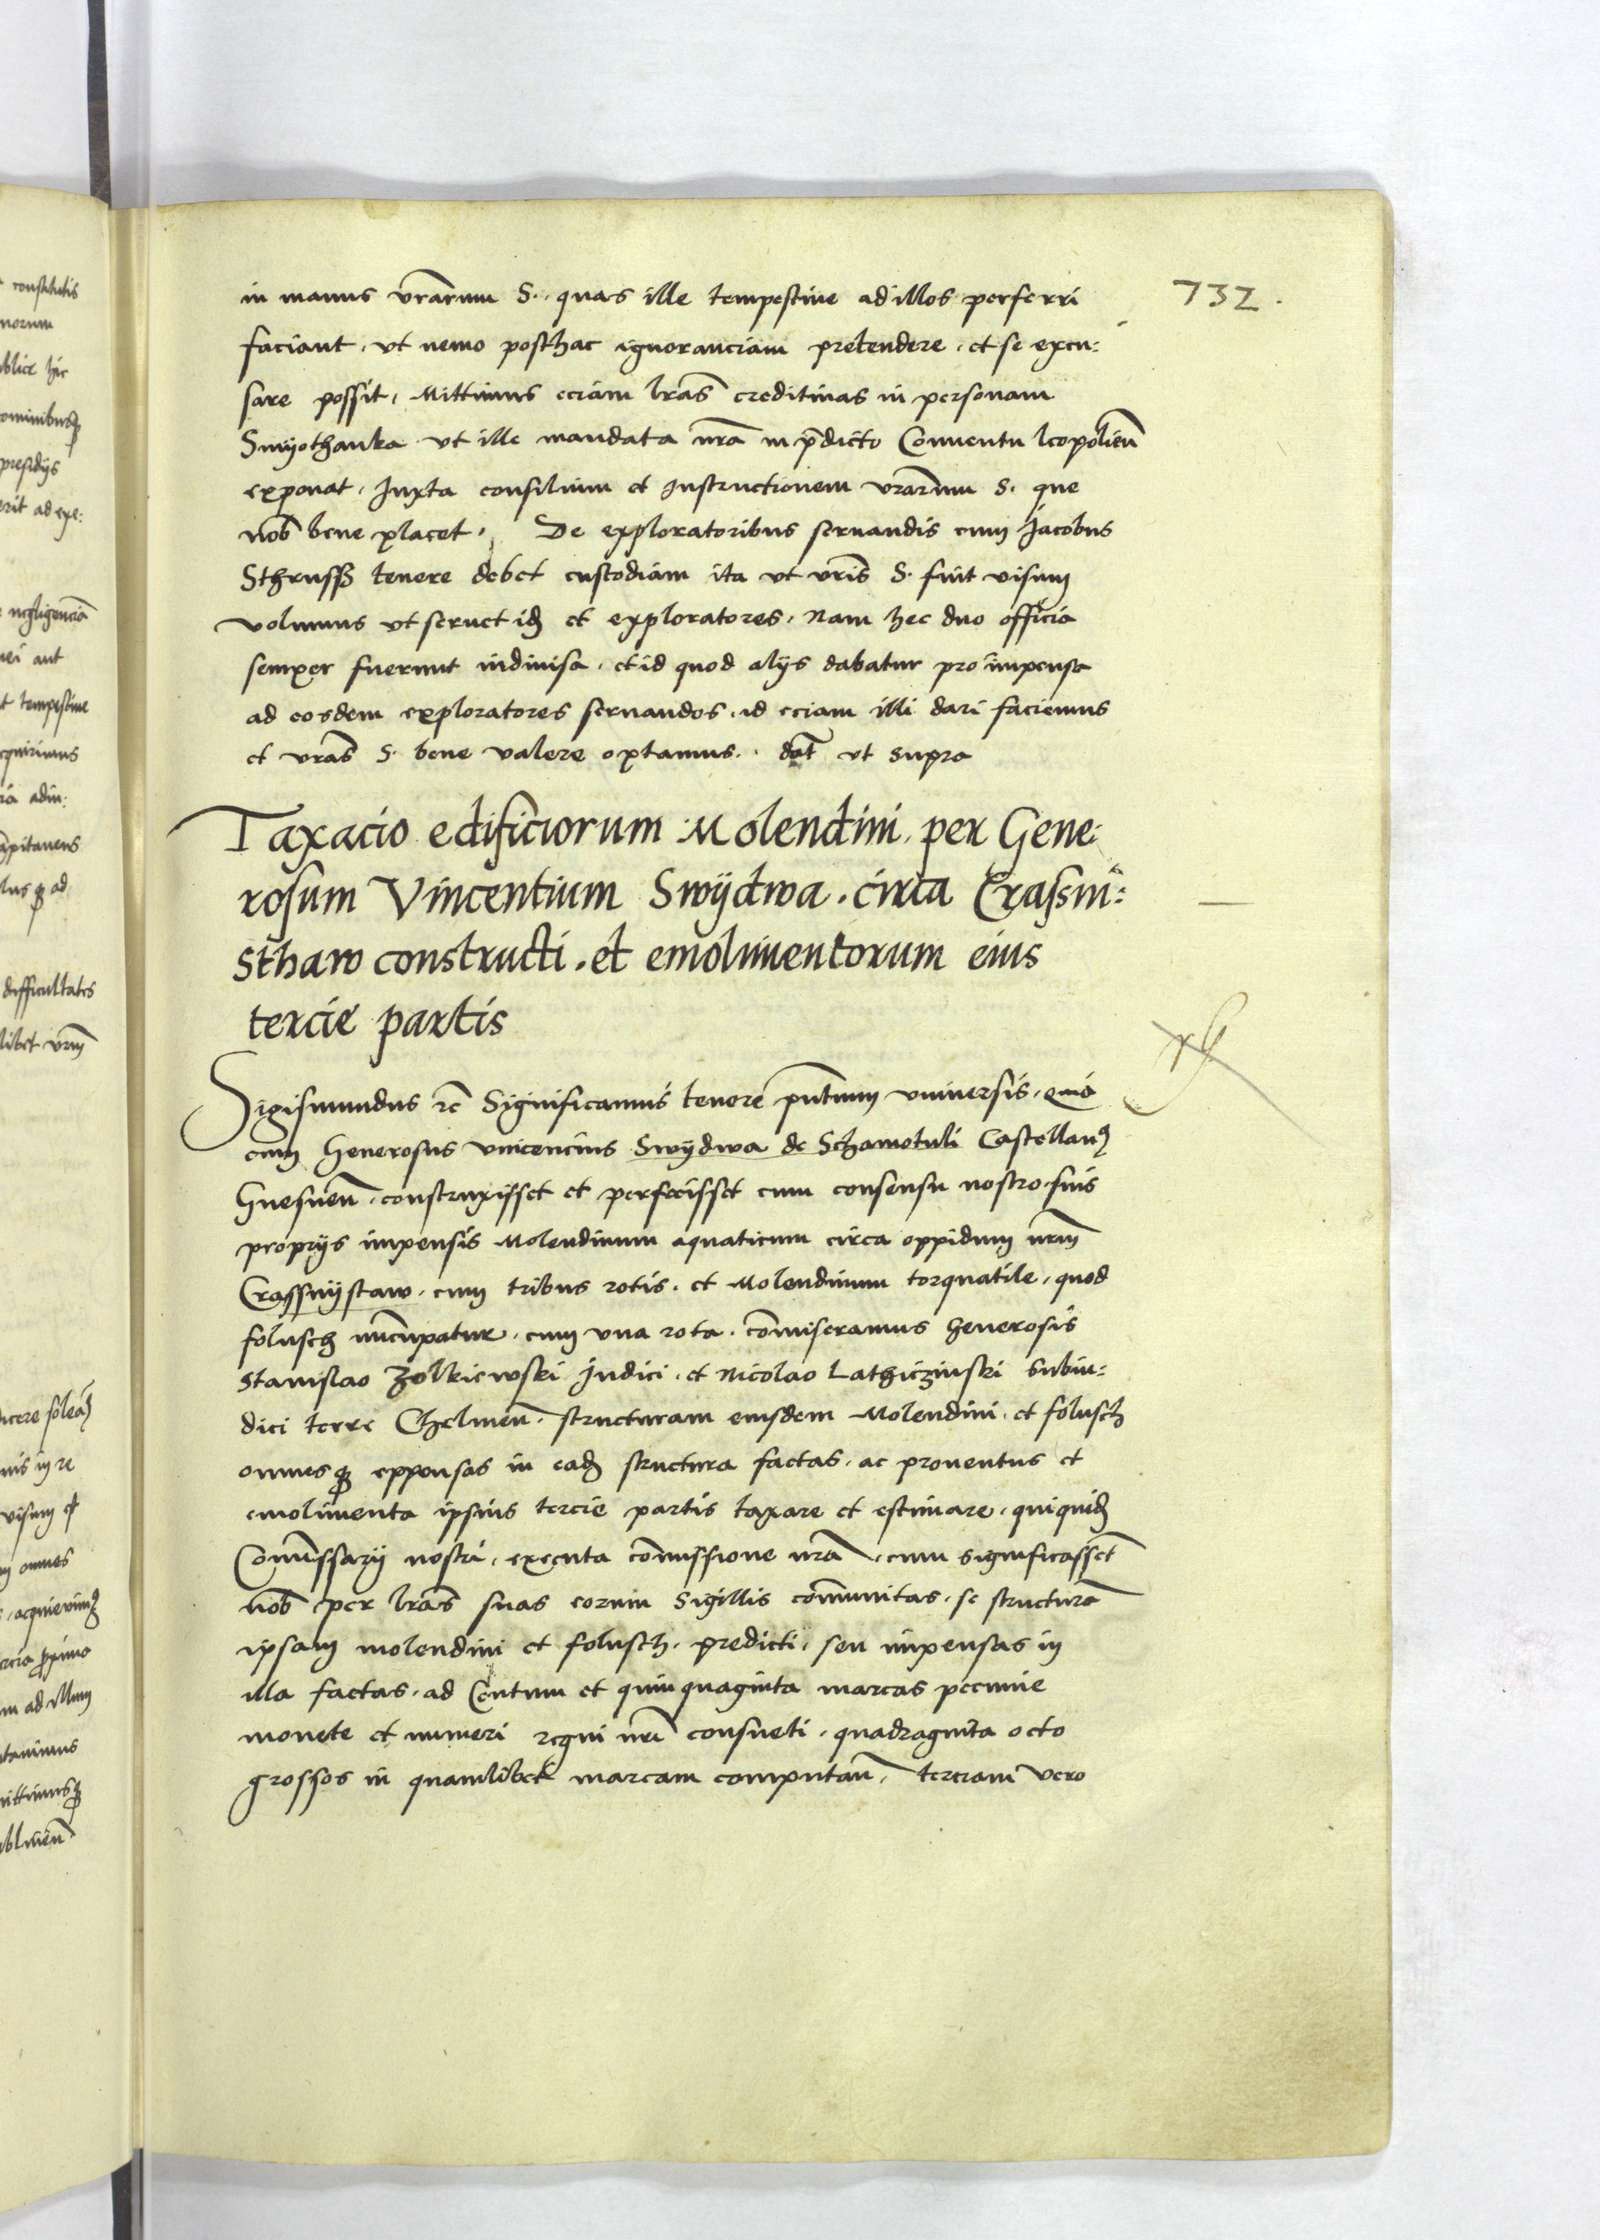 732.
in manus vrarum S. quas ille tempestiue ad illos perferri
faciant, vt nemo posthac ignoranciam pretendere, et se excu:
sare possit, Mittimus eciam lras creditiuas in personam
Swyothanka vt ille mandata nra in pdicto Conuentu leopolien
exponat, Juxta consilium et Instructionem vrarum S. que
nob bene placet, De exploratoribus seruandis cum Jacobus
Sthruss tenere debet custodiam ita vt vris S. fuit visum
volumus vt seruet id et exploratores, Nam hec duo officia
semper fuerunt indiuisa, et id quod alijs dabatur pro impensa
ad eosdem exploratores seruandos, id eciam illi dari faciemus
et vras S. bene valere optamus. dat vt supra
Taxacio edificiorum Molendini, per Gene:
rosum Vincentium Swydwa, circa Crasni:
sthaw constructi, et emolimentorum eius
tercie partis
Sigismundus rc Significamus tenore pntium vniuersis, quia
cum Generosus vincencius Swydwa de Schamotuli Castellan
Gnesnen, construxisset et perfecisset cum consensu nostro suis
proprijs impensis Molendinum aquaticum circa oppidum nrm
Crassnystaw, cum tribus rotis, et Molendinum torquatile, quod
folusch nuncupatur, cum vna rota, comiseramus Generosis
Stanislao Zolkiewski Judici, et Nicolao Lathiczinski Subiu:
dici terre Chelmen, structuram eiusdem Molendini, et folusch
omnesq expensas in ead structura factas, ac prouentus et
emolimenta ipsius tercie partis taxare et estimare, quiquid
Comissarij nostri, executa comissione nra, cum significassent
nob per lras suas eorum Sigillis communitas, se structura
ipsam molendini et folusch, predicti, seu impensas in
illa factas, ad Centum et quinquaginta marcas pecunie
monete et numeri regni nri consueti, quadraginta octo
grossos in quamlibet marcam computan, terciam vero